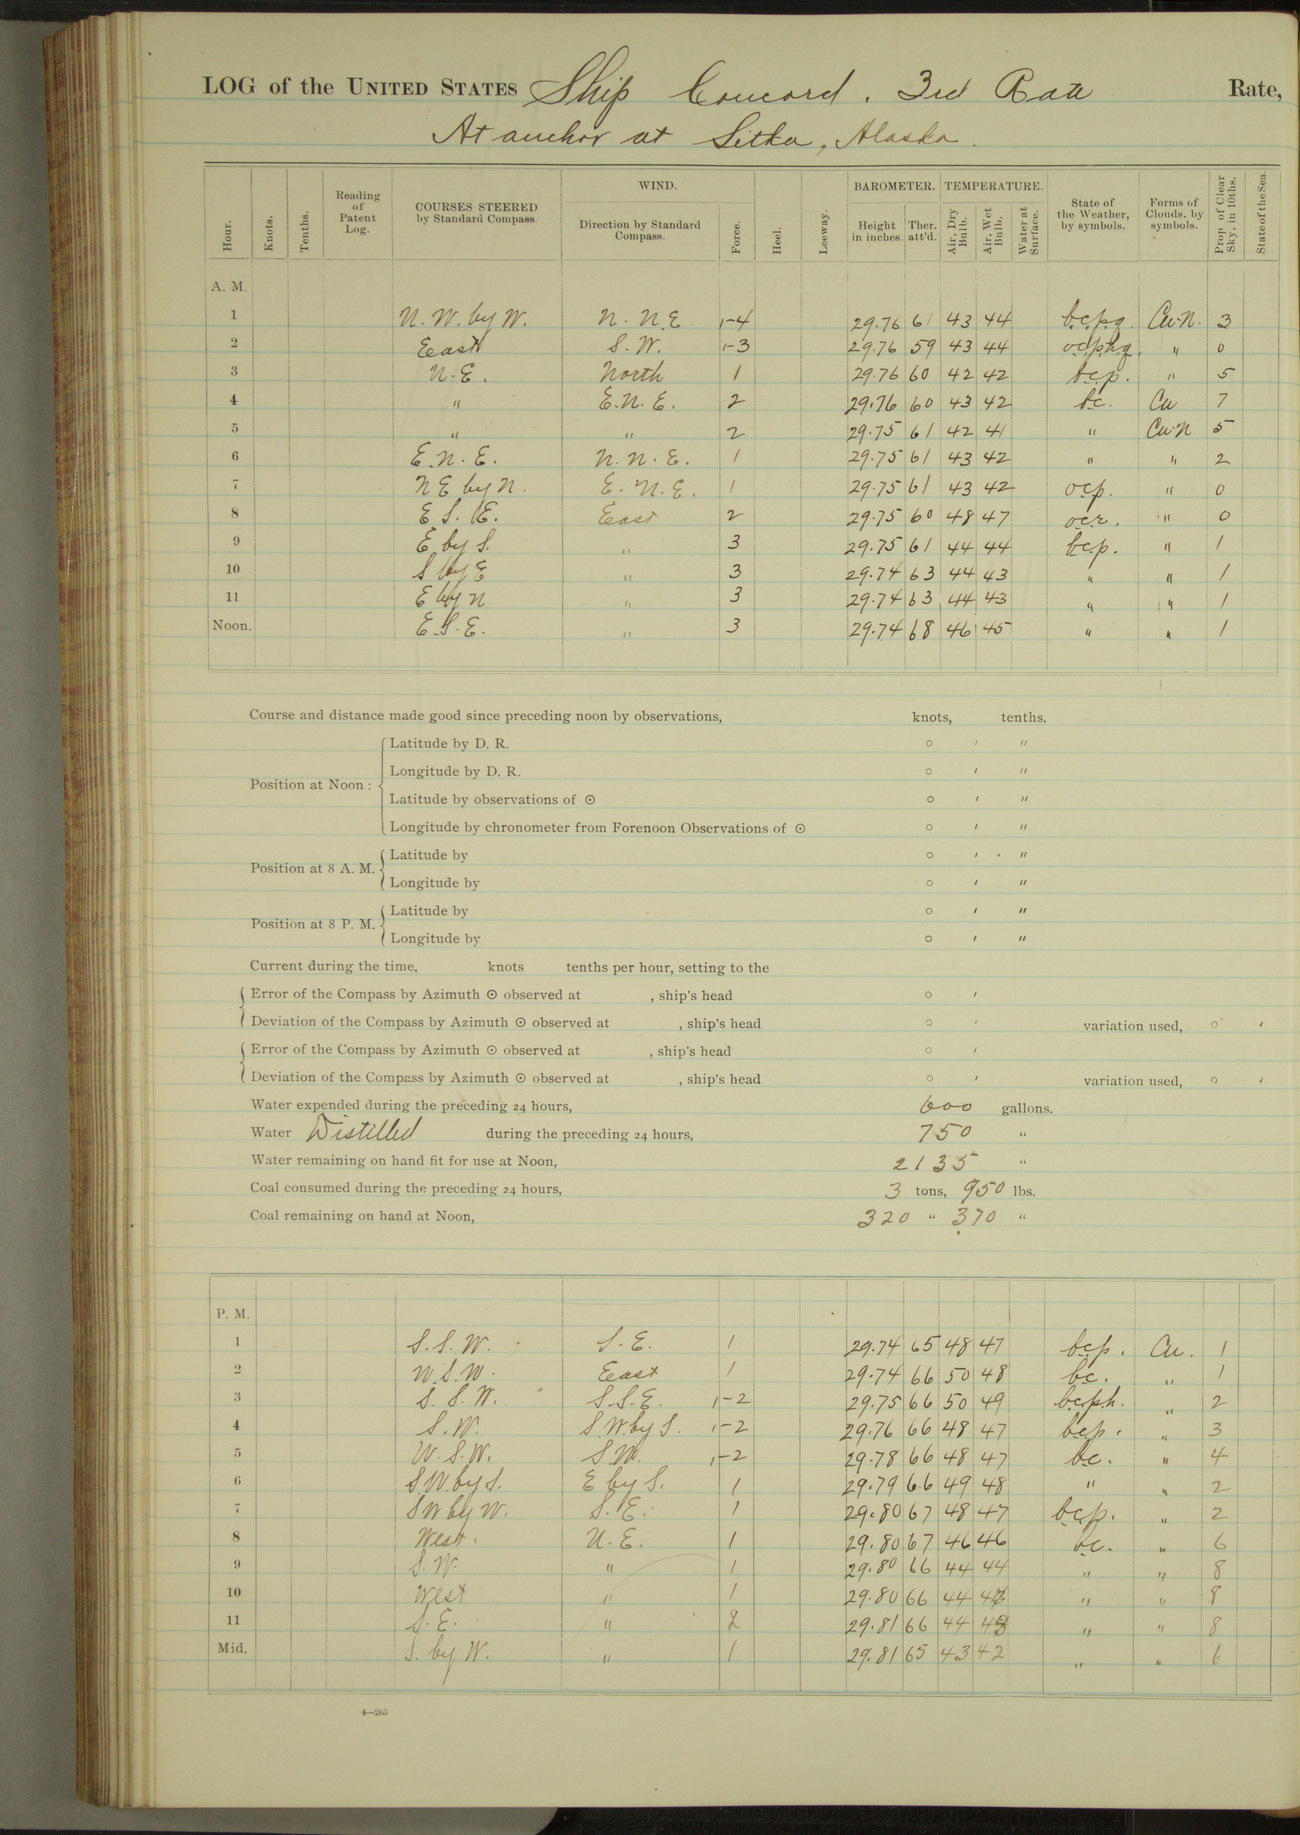 LOG of the UNITED STATES Ship Concord. 3rd Rate Rate,
At anchor at Sitka, Alaska.
Hour. Knots. Tenths. Reading of Patent Log. COURSES STEERED by Standard Compass. WIND. Direction by Standard Compass. Force. Heel. Leeway. BAROMETER. Height in inches. Ther. att'd. TEMPERATURE. Air, Dry Bulb. Air, Wet Bulb. Water at Surface. State of the Weather, by symbols. Forms of Clouds, by symbols. Prop. of Clear Sky, in 10ths. State of the Sea.
A. M.
1 N. W. by W. N. N. E 1-4 29.76 61 43 44 b.c.p.q. Cu-N. 3
2 East S. W. 1-3 29.76 59 43 44 ocphq. " 0
3 N. E. North 1 29.76 60 42 42 bcp. " 5
4 " E. N. E. 2 29.76 60 43 42 bc. Cu 7
5 " " 2 29.75 61 42 41 " Cu-N 5
6 E. N. E. N. N. E. 1 29.75 61 43 42 " " 2
7 NE by N. E. N. E. 1 29.75 61 43 42 ocp. " 0
8 E. S. E. East 2 29.75 60 48 47 ocr. " 0
9 E by S. " 3 29.75 61 44 44 bcp. " 1
10 S by E " 3 29.74 63 44 43 " " 1
11 E by N " 3 29.74 63 44 43 " " 1
Noon. E. S. E. " 3 29.74 68 46 45 " " 1
Course and distance made good since preceding noon by observations, knots, tenths.
Position at Noon: Latitude by D. R. ° ' "
Longitude by D. R. ° ' "
Latitude by observations of ⊙ ° ' "
Longitude by chronometer from Forenoon Observations of ⊙ ° ' "
Position at 8 A. M. Latitude by ° ' "
Longitude by ° ' "
Position at 8 P. M. Latitude by ° ' "
Longitude by ° ' "
Current during the time, knots tenths per hour, setting to the
Error of the Compass by Azimuth ⊙ observed at , ship's head ° '
Deviation of the Compass by Azimuth ⊙ observed at , ship's head ° ' variation used, ° '
Error of the Compass by Azimuth ⊙ observed at , ship's head ° '
Deviation of the Compass by Azimuth ⊙ observed at , ship's head ° ' variation used, ° '
Water expended during the preceding 24 hours, 600 gallons.
Water Distilled during the preceding 24 hours, 750 "
Water remaining on hand fit for use at Noon, 2135 "
Coal consumed during the preceding 24 hours, 3 tons, 950 lbs.
Coal remaining on hand at Noon, 320 " 370 "
P. M.
1 S. S. W. S. E. 1 29.74 65 48 47 bcp. Cu. 1
2 W. S. W. East 1 29.74 66 50 48 bc. " 1
3 S. S. W. S. S. E. 1-2 29.75 66 50 49 bcph. " 2
4 S. W. S. W. by S. 1-2 29.76 66 48 47 bcp. " 3
5 W. S. W. S. W. 1-2 29.78 66 48 47 bc. " 4
6 S. W. by S. E by S. 1 29.79 66 49 48 " " 2
7 SW by W. S. E. 1 29.80 67 48 47 bcp. " 2
8 West. N. E. 1 29.80 67 46 46 bc. " 6
9 S. W. " 1 29.80 66 44 44 " " 8
10 West " 1 29.80 66 44 43 " " 8
11 S. E. " 2 29.81 66 44 43 " " 8
Mid. S. by W. " 1 29.81 65 43 42 " " 6
4—265